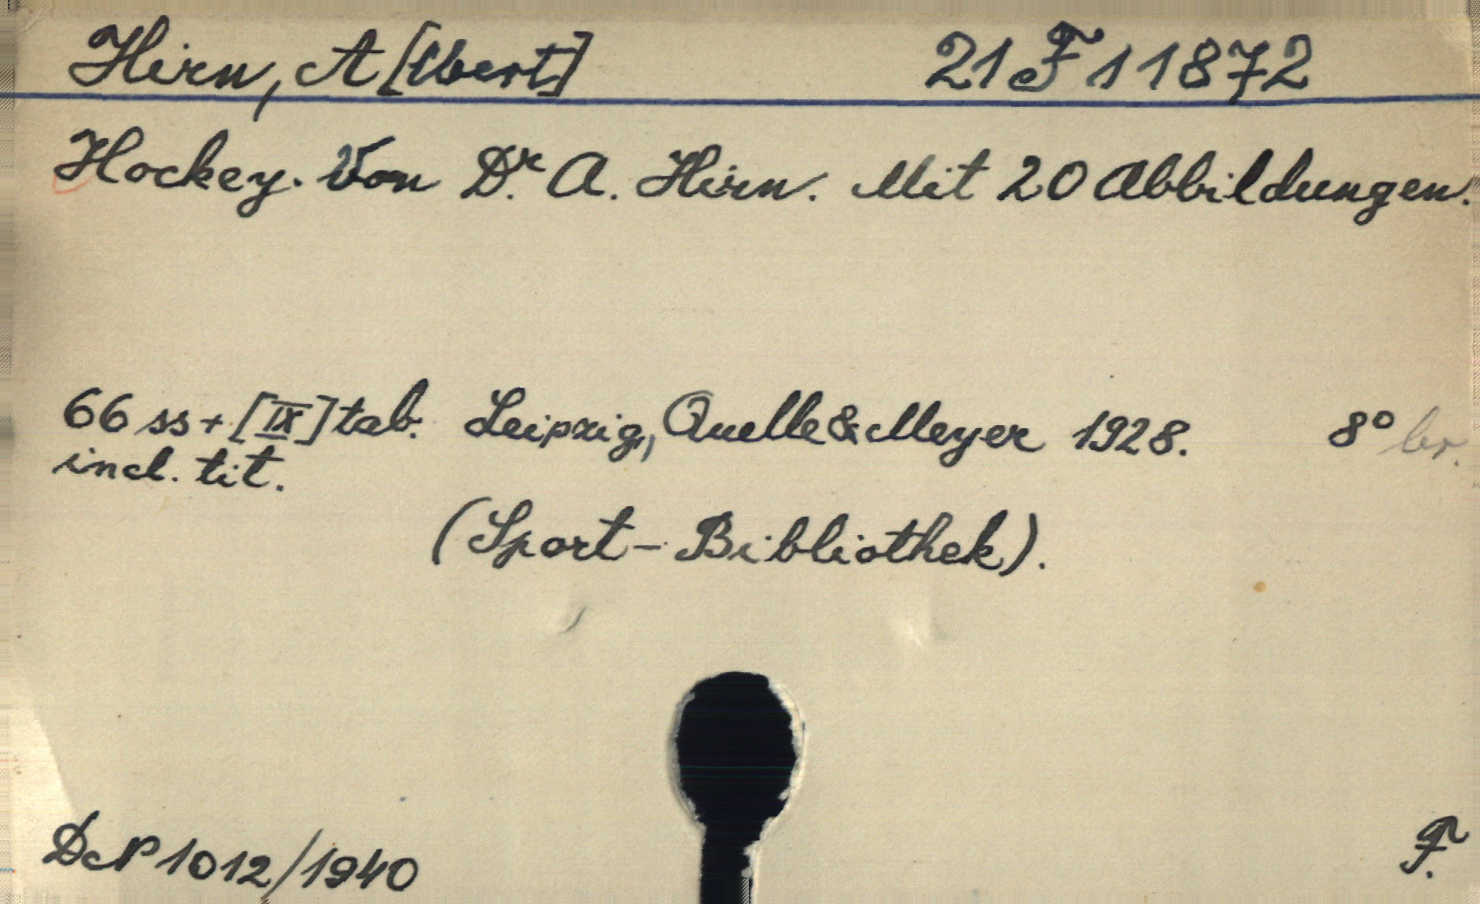 Hirn, A[lbert] 21 F 11872
Hockey. Von Dr. A. Hirn. Mit 20 Abbildungen.
66 ss + [IX] tab. Leipzig, Quelle & Meyer 1928. 8° br.
incl. tit.
(Sport-Bibliothek).
1012/1940 F.